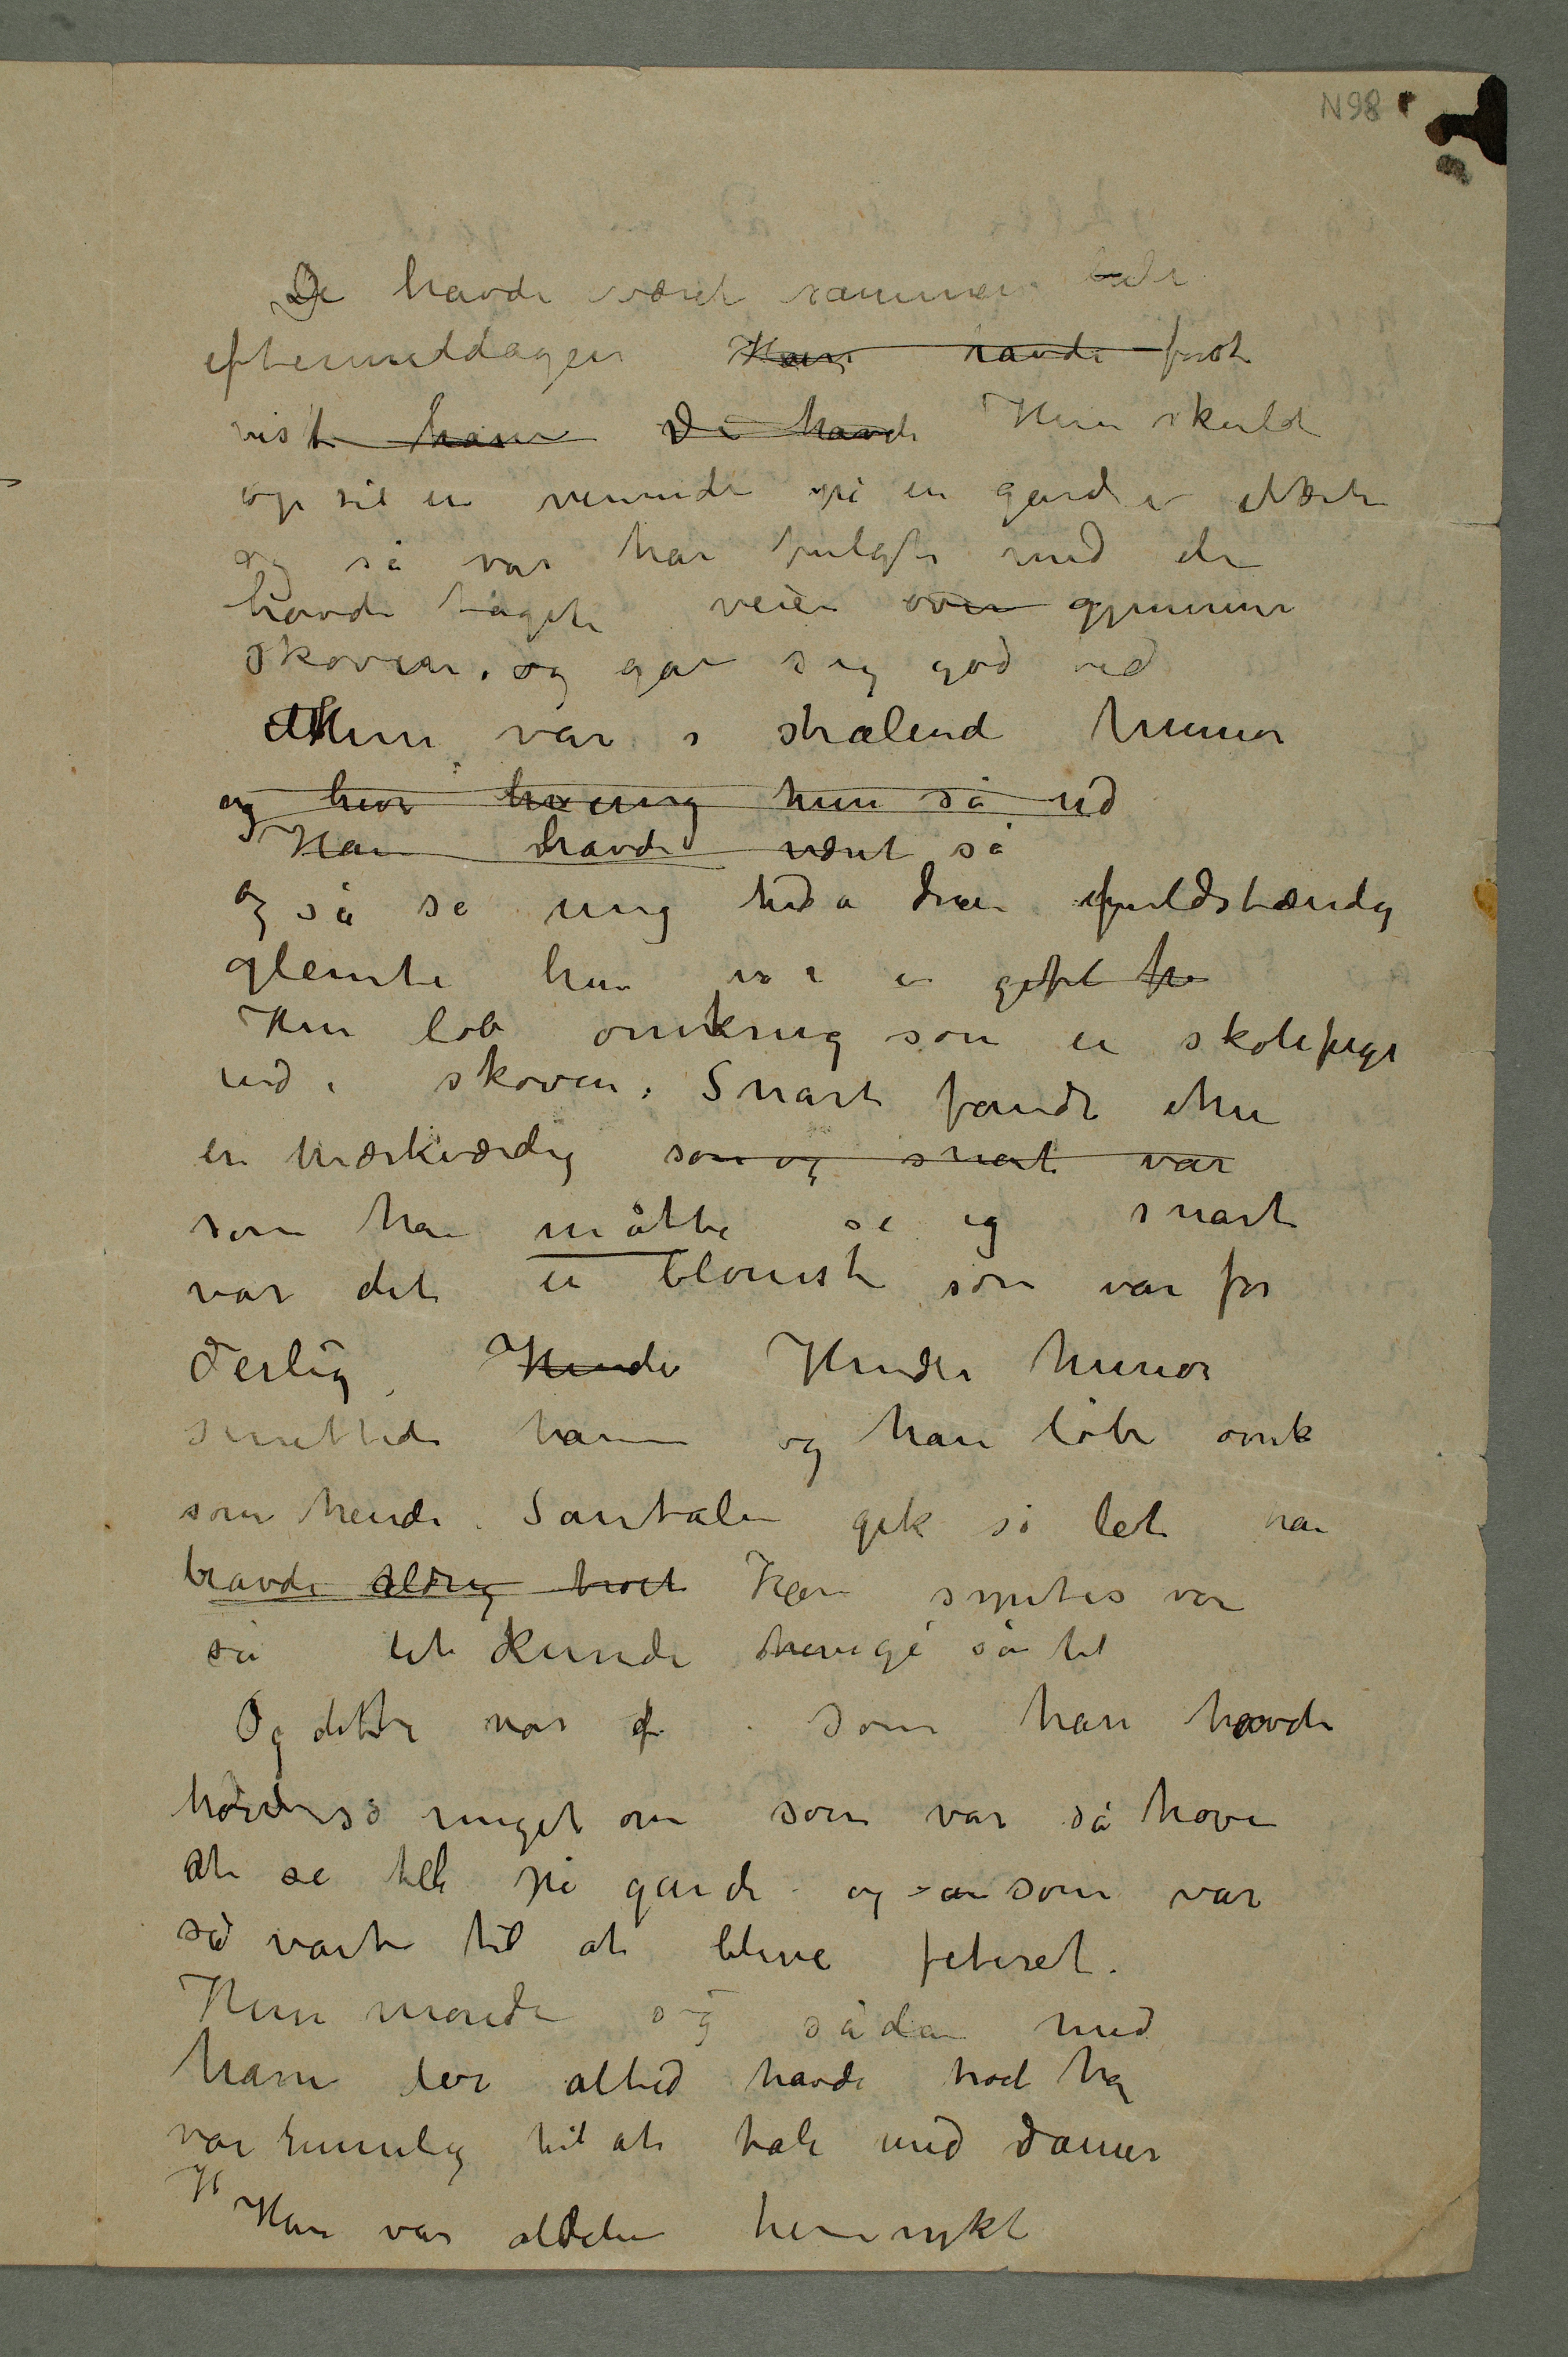 N98
De havde været sammen hele
eftermiddagen Han havde først
vist ham De havde Hun skuld
op til en veninde på en gård i
og så var han fulgt med de
havde taget veien over gjennem
skoven, og gav sig god tid
Hun var i strålend humør
og hvor hvor ung hun så ud
Han havde været så
og så så ung ud a den fuldstændig
glemte hun var en gift fr
Hun løb omkring som en skolepige
ind i skoven. Snart fandt hun
en mærkværdig som og snart var
som han måtte se og snart
var det en blomst som var for
deilig, Hende Hendes humør
smittede ham og han løb omk
som hende. Samtalen gik så let han
havde aldrig troet Han syntes var
så let kunde henge så til
Og dette var d. som han havde
hørt så meget om som var så hove
at se til på garde og som var
så vant til at blive feteret.
Hun morede sig sådan med
ham der altid havde trod ha
var umulig til at tale med damer
H
Han var aldeles henrykt